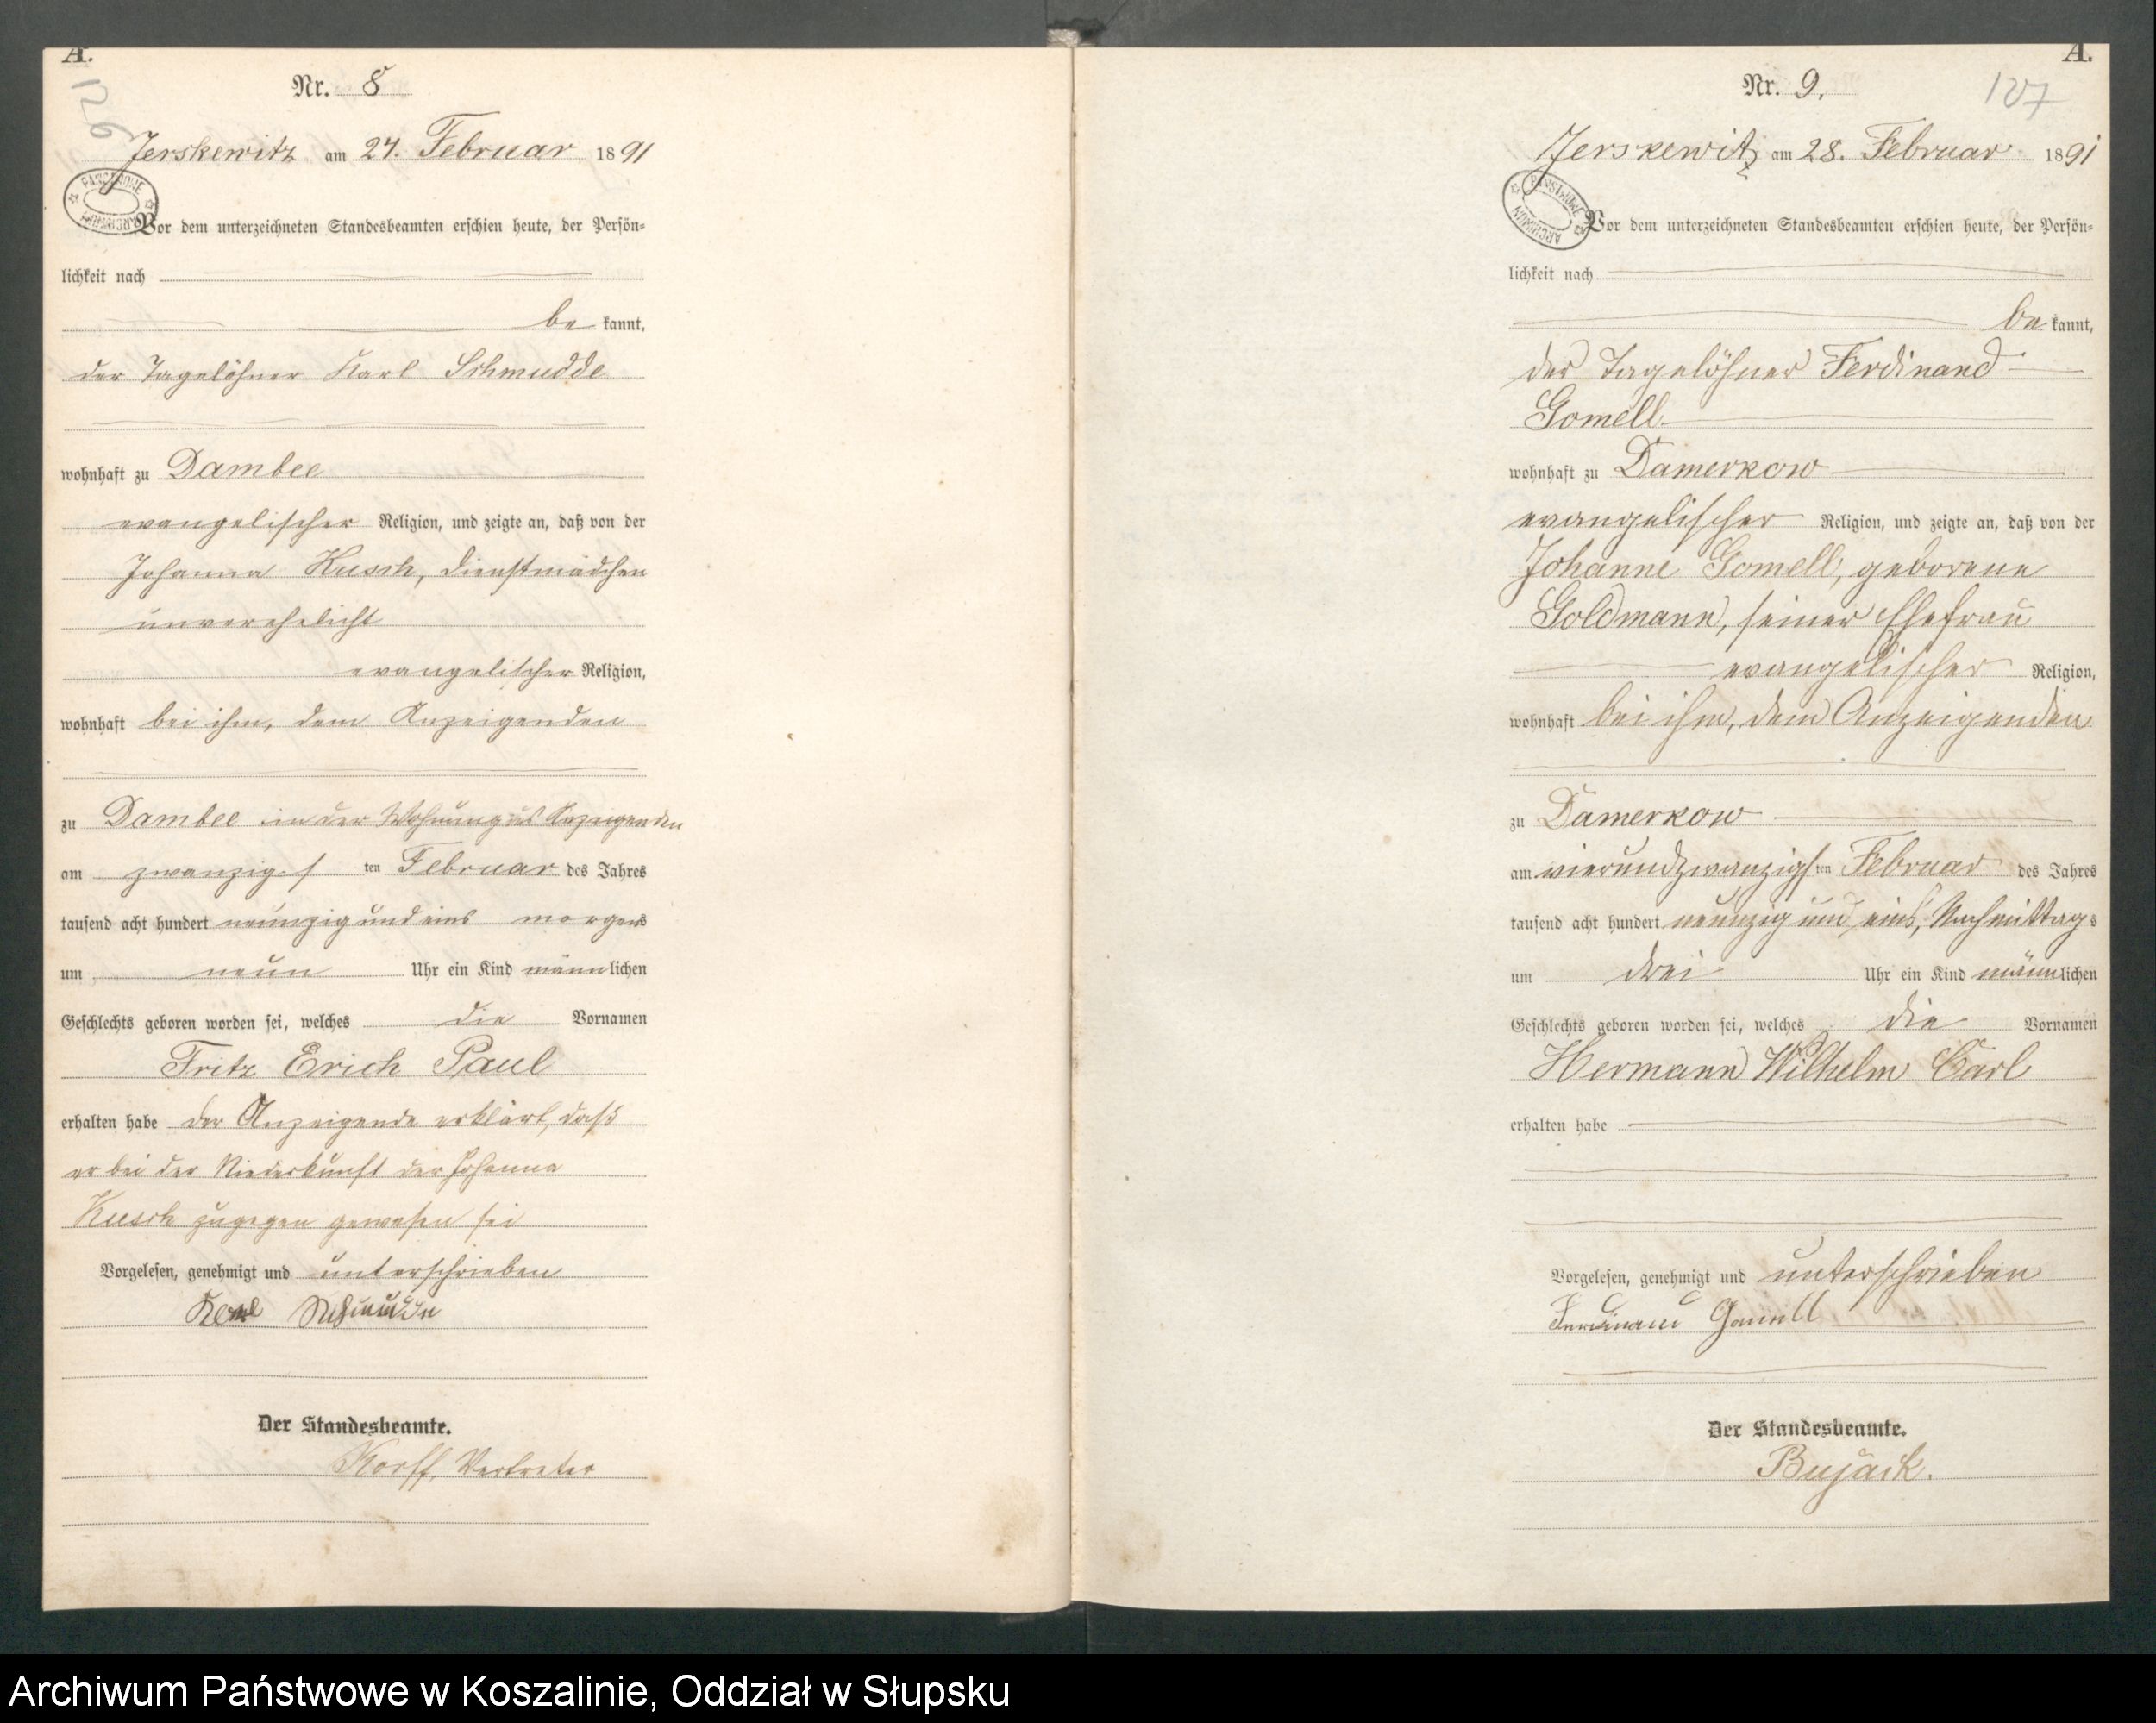 A.
126
Nr. 8
Jerskewitz am 24. Februar 1891
PAŃSTWOWE ARCHIWUM
Vor dem unterzeichneten Standesbeamten erschien heute, der Persön-
lichkeit nach
be kannt,
der Tagelöhner Karl Schmudde
wohnhaft zu Dambee
evangelischer Religion, und zeigte an, daß von der
Johanna Kusch, Dienstmädchen
unverehelicht
evangelischer Religion,
wohnhaft bei ihm, dem Anzeigenden
zu Dambee in der Wohnung des Anzeigenden
am zwanzigs ten Februar des Jahres
tausend acht hundert neunzig und eins morgens
um neun Uhr ein Kind männlichen
Geschlechts geboren worden sei, welches die Vornamen
Fritz Erich Paul
erhalten habe der Anzeigende erklärt, daß
er bei der Niederkunft der Johanna
Kusch zugegen gewesen sei
Vorgelesen, genehmigt und unterschrieben
Karl Schmudde
Der Standesbeamte.
Korff, Vertreter
A.
107
Nr. 9.
Jerskewitz am 28. Februar 1891
PAŃSTWOWE ARCHIWUM
Vor dem unterzeichneten Standesbeamten erschien heute, der Persön-
lichkeit nach
be kannt,
der Tagelöhner Ferdinand
Gomell
wohnhaft zu Damerkow
evangelischer Religion, und zeigte an, daß von der
Johanne Gomell, geborene
Goldmann, seiner Ehefrau
evangelischer Religion,
wohnhaft bei ihm, dem Anzeigenden
zu Damerkow
am vierundzwanzigs ten Februar des Jahres
tausend acht hundert neunzig und eins, Nachmittags
um drei Uhr ein Kind männlichen
Geschlechts geboren worden sei, welches die Vornamen
Hermann Wilhelm Carl
erhalten habe
Vorgelesen, genehmigt und unterschrieben
Ferdinand Gomell
Der Standesbeamte.
Bujack.
Archiwum Państwowe w Koszalinie, Oddział w Słupsku